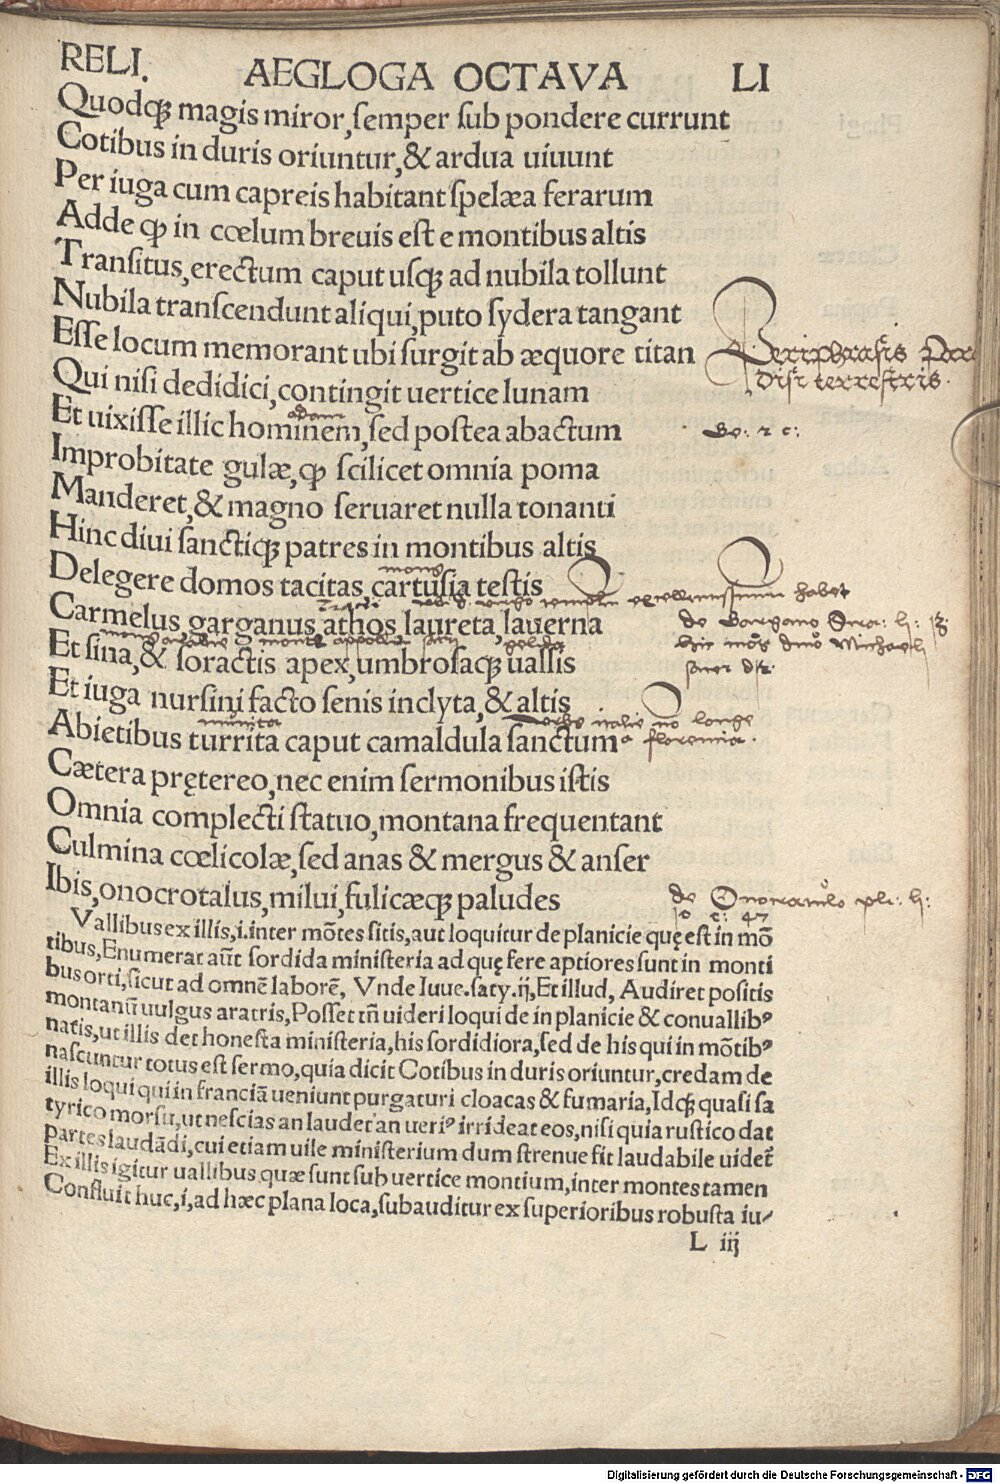 RELI. AEGLOGA OCTAVA LI
Quodqꝫ magis miror, ſemper ſub pondere currunt
Cotibus in duris oriuntur, & ardua uiuunt
Per iuga cum capreis habitant ſpelæa ferarum
Adde ꝙ in cœlum breuis eſt e montibus altis
Tranſitus, erectum caput uſqꝫ ad nubila tollunt
Nubila tranſcendunt aliqui, puto ſydera tangant
Eſſe locum memorant ubi ſurgit ab æquore titan
Periphraſis Para
diſi terreſtris.
Qui niſi dedidici, contingit uertice lunam
adam
Et uixiſſe illic hominem, ſed poſtea abactum
Improbitate gulæ, ꝙ ſcilicet omnia poma
Manderet, & magno ſeruaret nulla tonanti
Hinc diui ſanctiqꝫ patres in montibus altis
mons
Delegere domos tacitas, cartuſia teſtis
Carmelus garganus athos laureta, lauerna
Et ſina, & ſoractis apex, umbroſaqꝫ uallis
Et iuga nurſini facto ſenis inclyta, & altis
munita
Abietibus turrita caput camaldula ſanctum
Cætera prętereo, nec enim ſermonibus iſtis
Omnia complecti ſtatuo, montana frequentant
Culmina cœlicolæ, ſed anas & mergus & anſer
Ibis, onocrotalus, milui, fulicæqꝫ paludes
Vallibus ex illis, i. inter mōtes ſitis, aut loquitur de planicie quę eſt in mō
tibus, Enumerat aūt ſordida miniſteria ad quę fere aptiores ſunt in monti
bus orti, ſicut ad omnē laborē, Vnde Iuue. ſaty. ij, Et illud, Audiret poſitis
montanū uulgus aratris, Poſſet tn̄ uideri loqui de in planicie & conuallibꝰ
natis, ut illis det honeſta miniſteria, his ſordidiora, ſed de his qui in mōtibꝰ
naſcuntur totus eſt ſermo, quia dicit Cotibus in duris oriuntur, credam de
illis loqui qui in franciā ueniunt purgaturi cloacas & fumaria, Idqꝫ quaſi ſa
tyrico morſu, ut neſcias an laudet an ueriꝰ irrideat eos, niſi quia ruſtico dat
partes laudādi, cui etiam uile miniſterium dum ſtrenue fit laudabile uidet̄
Ex illis igitur uallibus quæ ſunt ſub uertice montium, inter montes tamen
Confluit huc, i, ad hæc plana loca, ſubauditur ex ſuperioribus robuſta iu⸗
L iij
Digitalisierung gefördert durch die Deutsche Forschungsgemeinschaft - DFG